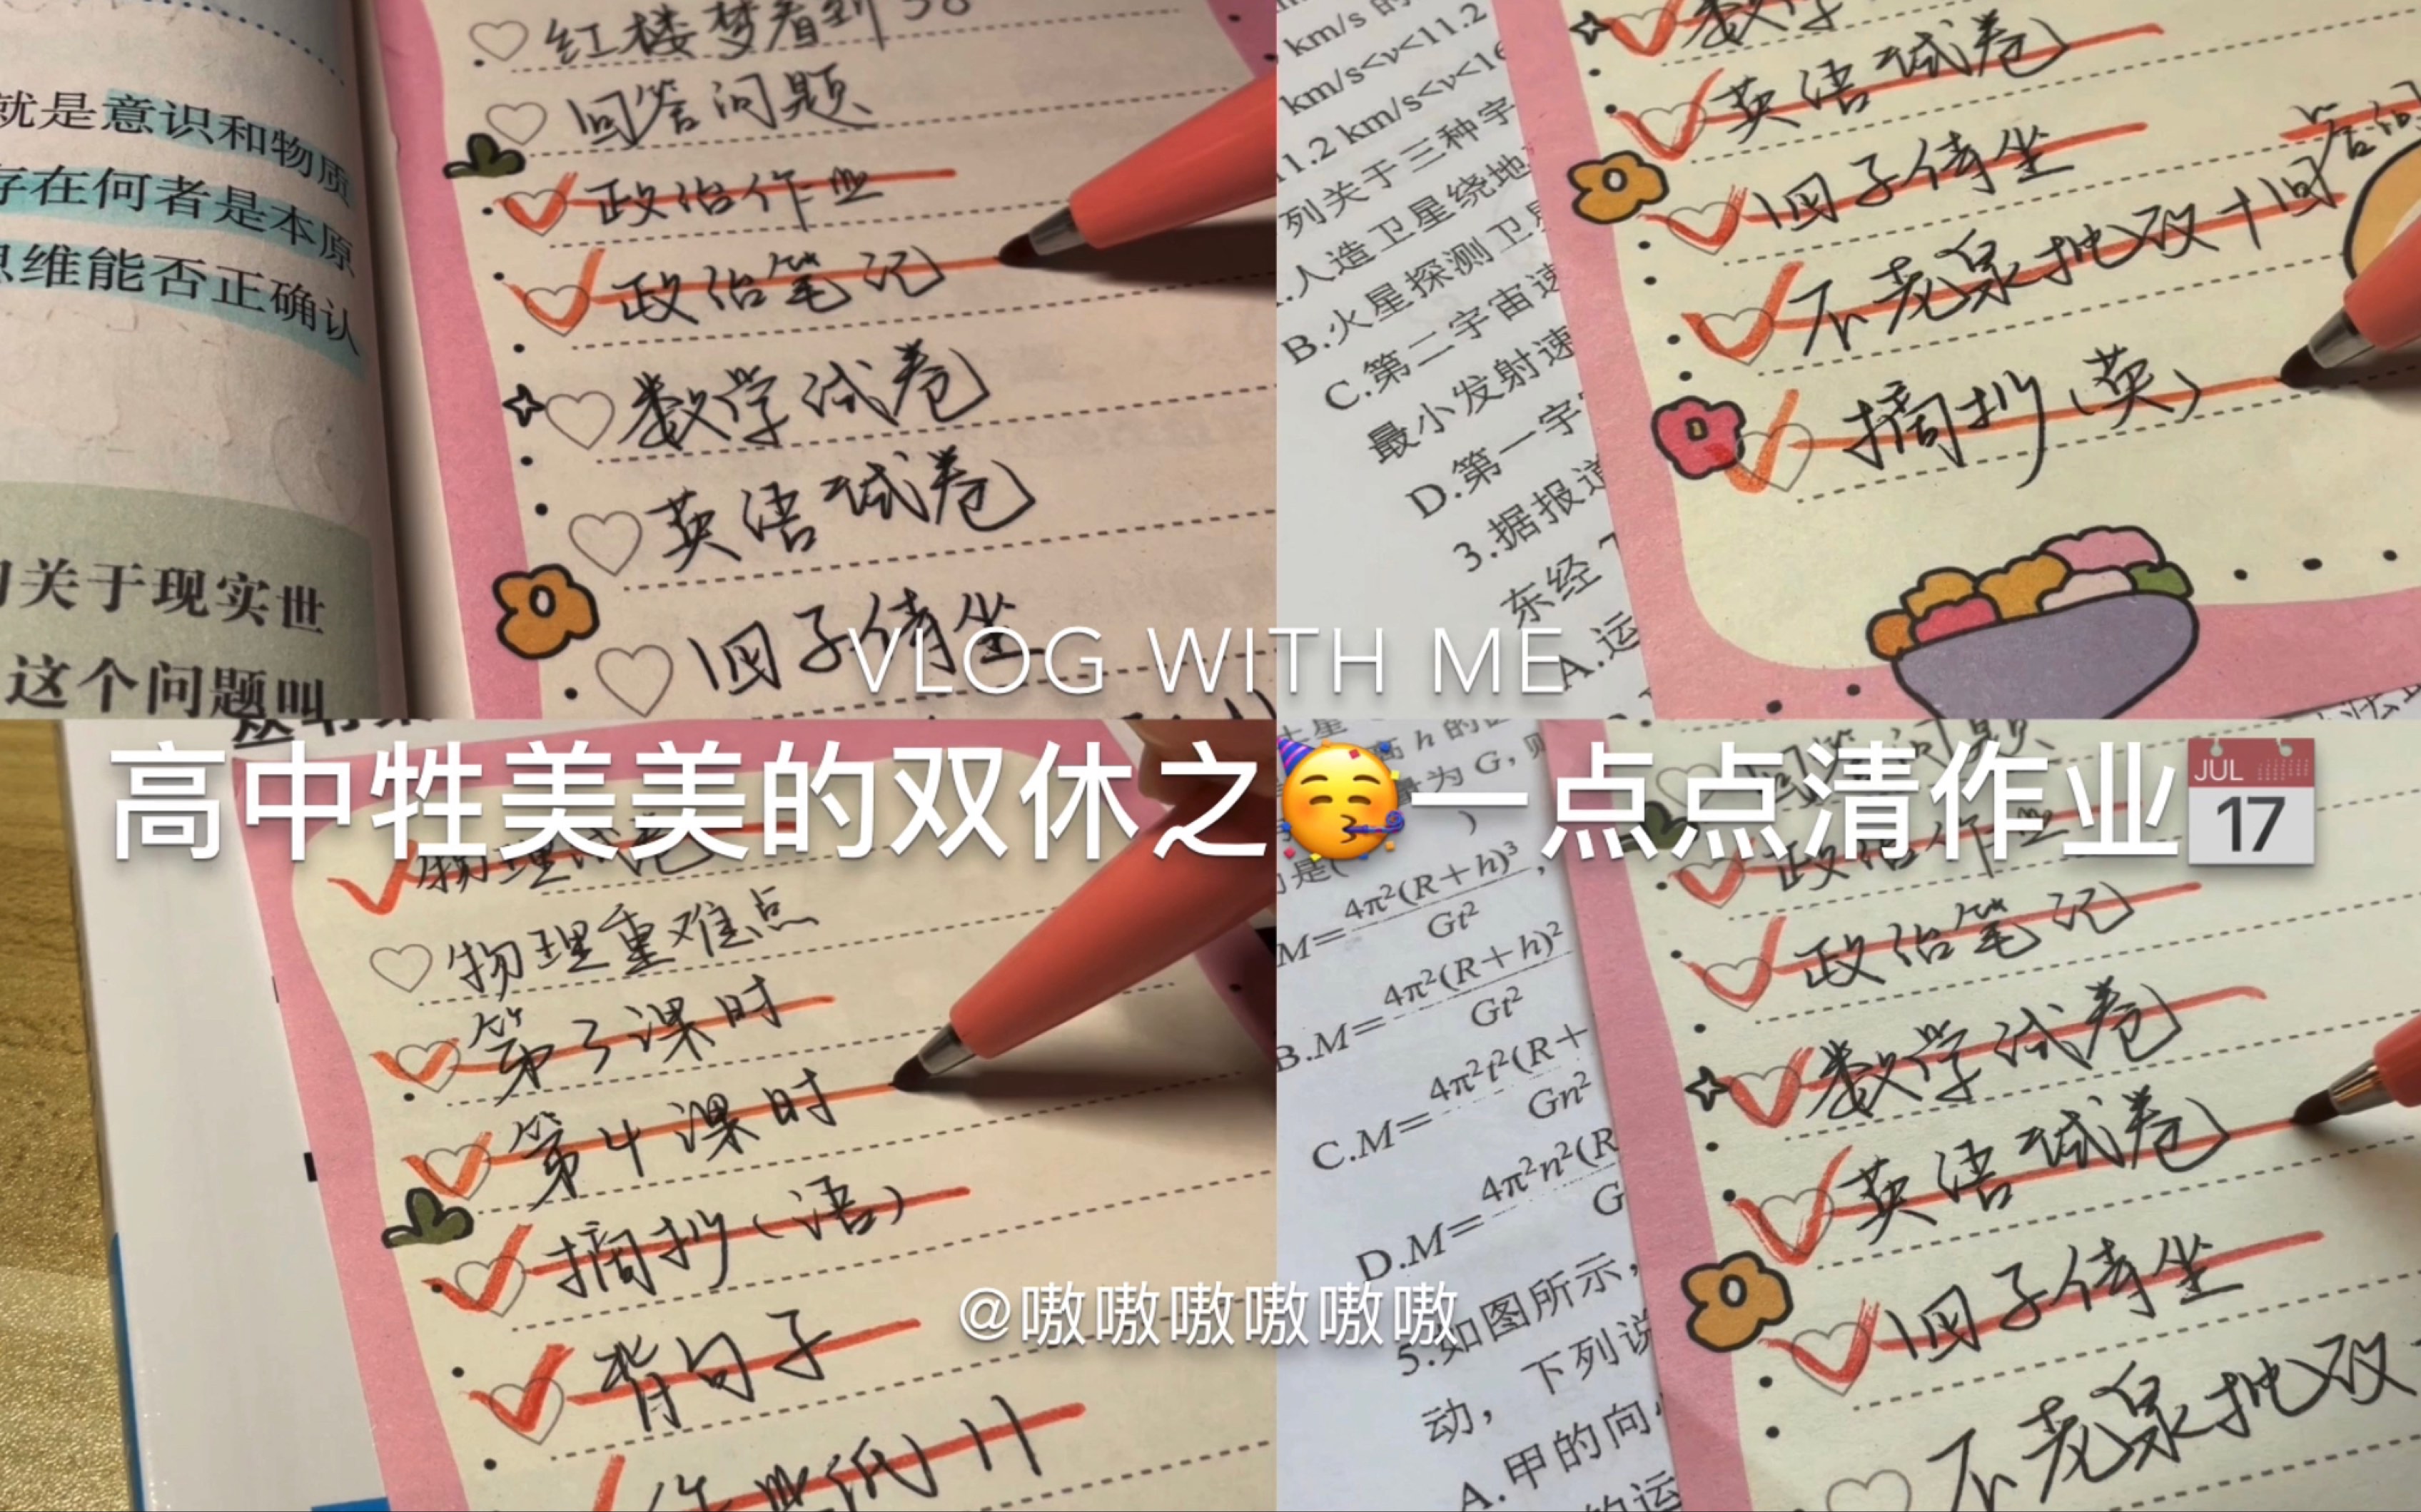 就是意识和物质
存在何者是本原
思维能否正确认
关于现实世
这个问题叫
红楼梦看到38
回答问题
政治作业
政治笔记
数学试卷
英语试卷
四子侍坐
km/s 的
km/s<v<11.2
11.2 km/s<v<16
列关于三种宇
人造卫星绕地
B.火星探测卫星
C.第二宇宙速
最小发射速
D.第一宇
3.据报道
东经
A.运
数学
英语试卷
四子侍坐
不老泉批改+回答问
摘抄(英)
VLOG WITH ME
高中牲美美的双休之🥳一点点清作业📅
JUL
17
物理试卷
物理重难点
第3课时
第4课时
摘抄(语)
背句子
作业纸11
高 h 的
量为 G,则
是( )
M=4π²(R+h)³/Gt²,
B.M=4π²(R+h)²/Gt²
C.M=4π²t²(R+/Gn²
D.M=4π²n²(R/G
5.如图所示,
动,下列说
A.甲的向
的运
回答问题
政治作业
政治笔记
数学试卷
英语试卷
四子侍坐
不老泉批改
@嗷嗷嗷嗷嗷嗷